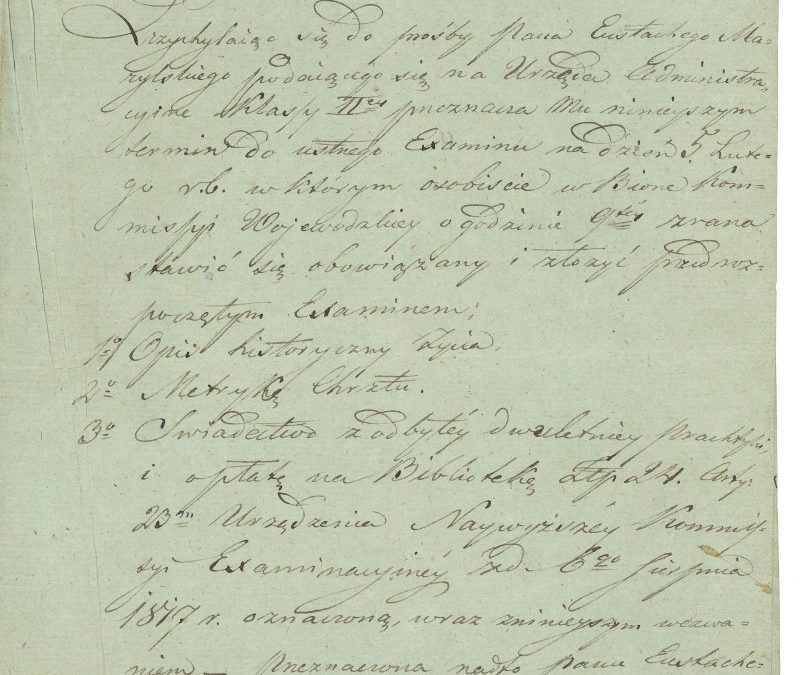 Przychylaiąc się do prośby Pana Eustachego Ma=
rylskiego podaiącego się na Urzęda Administra,
cyine Klassy IIey przeznacza Mu ninieyszym
termin do ustnego Examinu na dzień 5. Lute=
go r.b. w którym osobiście w Biórze Kom=
missyi Wojewódzkiey o godzinie 9téy zrana
stawić się obowiązany i złożyć przed roz=
poczętym Examinem;
1o Opis historyczny Życia,
2o Metrykę Chrztu.
3o Swiadectwo z odbytéy dwuletniey Practyki,
i opłatę na Bibliotekę Złp 24. Arty:
23m Urządzenia Naywyższéy Kommis=
syi Examinacyinéy z d. 6go Sierpnia
1817 r. oznaczoną, wraz z ninieyszym wezwa=
niem – Przeznaczona nadto Panu Eustache=